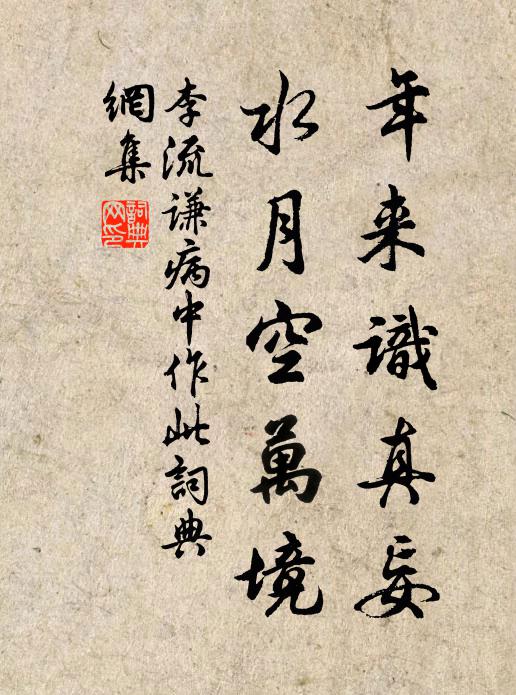 年来識真妄
水月空萬境
李流谦病中作此詞典
網集
詞典網印